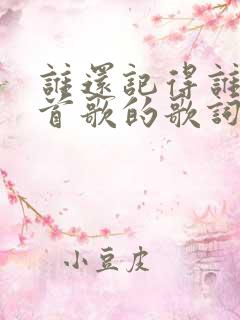 誰還記得誰
首歌的歌詞
小豆皮